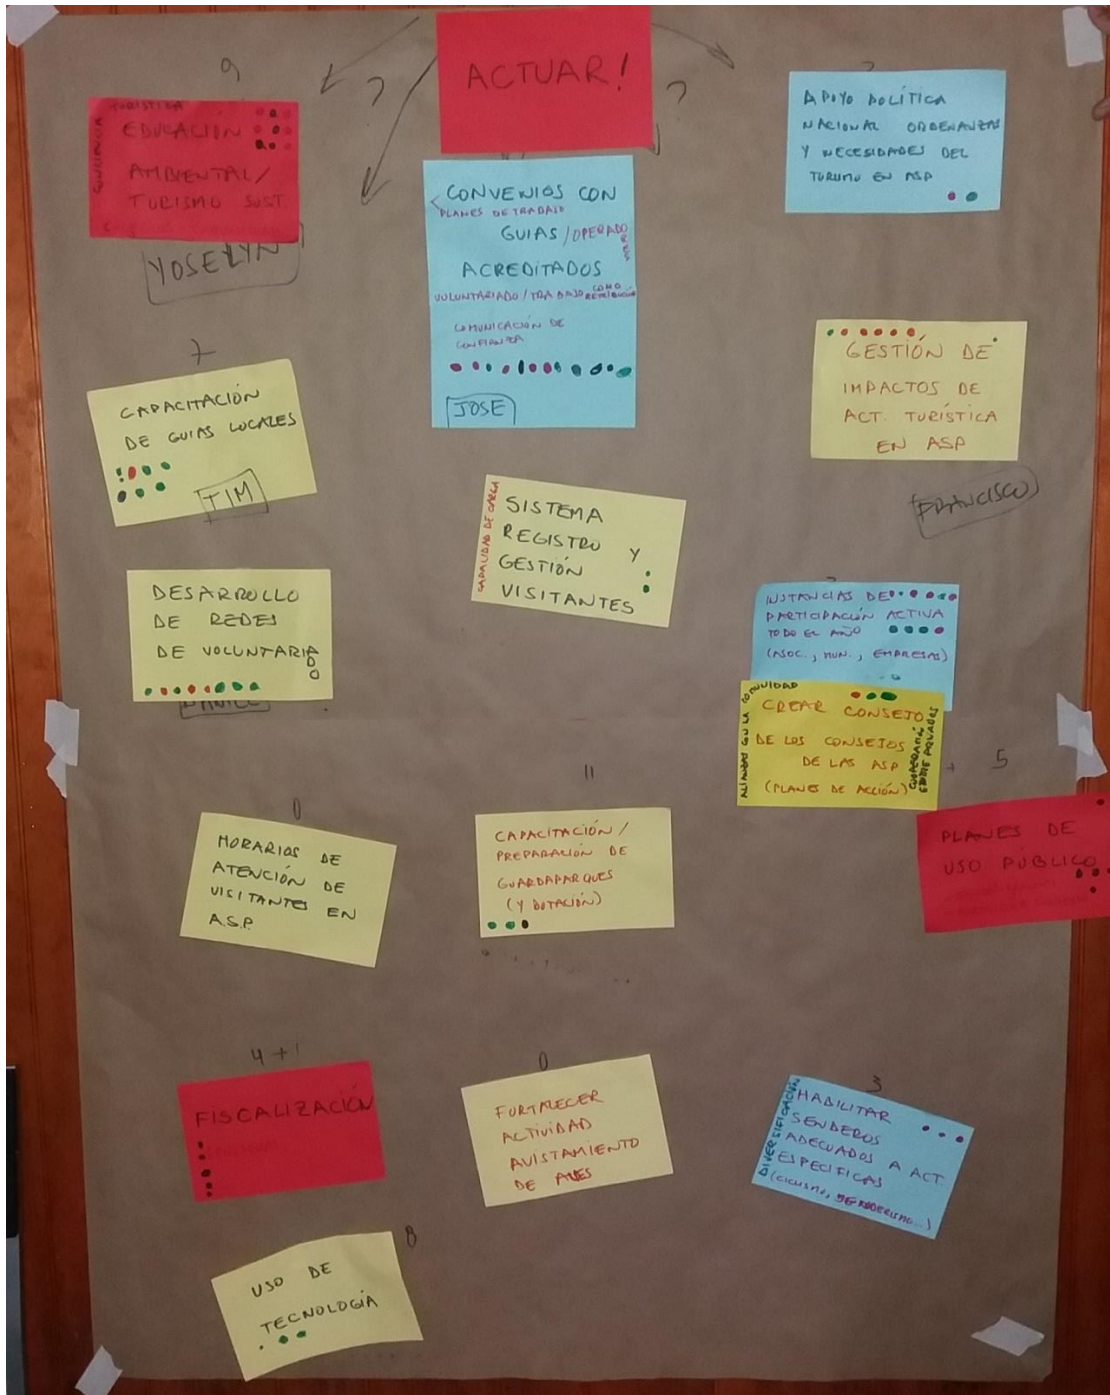 ACTUAR!
?
?
9
TURÍSTICA
CONCIENCIA
EDUCACIÓN
AMBIENTAL/
TURISMO SUST.
YOSELYN
CONVENIOS CON
PLANES DE TRABAJO
GUIAS / OPERADORES
ACREDITADOS
VOLUNTARIADO / TRABAJO COMO RETRIBUCIÓN
COMUNICACIÓN DE
CONFIANZA
JOSE
2
APOYO POLÍTICA
NACIONAL ORDENANZAS
Y NECESIDADES DEL
TURISMO EN ASP
7
CAPACITACIÓN
DE GUIAS LOCALES
TIM
GESTIÓN DE
IMPACTOS DE
ACT. TURÍSTICA
EN ASP
FRANCISCO
CAPACIDAD DE CARGA
SISTEMA
REGISTRO Y
GESTIÓN
VISITANTES
DESARROLLO
DE REDES
DE VOLUNTARIADO
INSTANCIAS DE
PARTICIPACIÓN ACTIVA
TODO EL AÑO
(ASOC., MUN., EMPRESAS)
ALIANZAS CON LA COMUNIDAD
CREAR CONSEJO
DE LOS CONSEJOS
DE LAS ASP
(PLANES DE ACCIÓN)
COOPERACIÓN
ENTRE PRIVADOS
+ 5
PLANES DE
USO PÚBLICO
0
HORARIOS DE
ATENCIÓN DE
VISITANTES EN
A.S.P.
11
CAPACITACIÓN /
PREPARACIÓN DE
GUARDAPARQUES
(Y DOTACIÓN)
4 + 1
FISCALIZACIÓN
0
FORTALECER
ACTIVIDAD
AVISTAMIENTO
DE AVES
3
DIVERSIFICACIÓN
HABILITAR
SENDEROS
ADECUADOS A ACT.
ESPECIFICAS
(CICLISMO, SENDERISMO...)
8
USO DE
TECNOLOGÍA